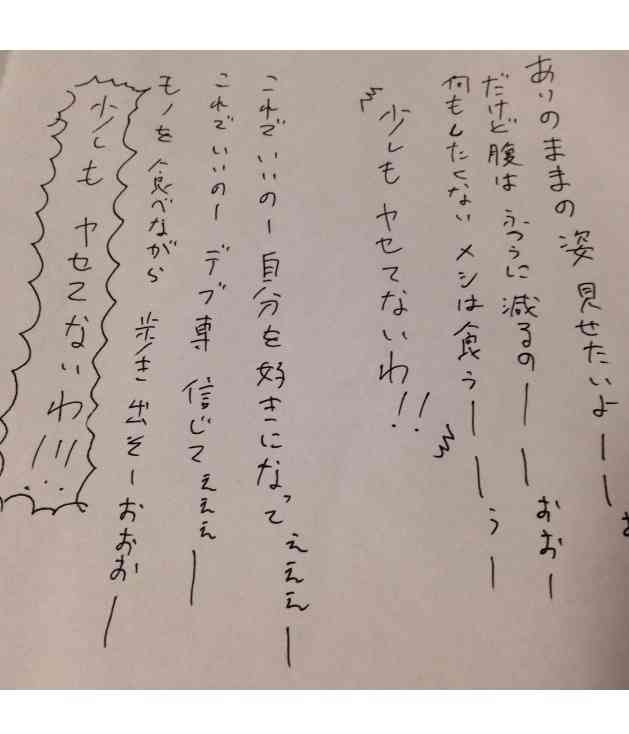 ありのままの姿 見せたいよーーお
だけど腹は ふつうに減るのーーおおー
何もしたくない メシは食うーーうー
少しもヤセてないわ!!
これでいいのー自分を好きになってぇぇぇー
これでいいのー デブ専 信じてぇぇぇー
モノを食べながら 歩き出そーおおおー
少しも ヤセてないわ!!!